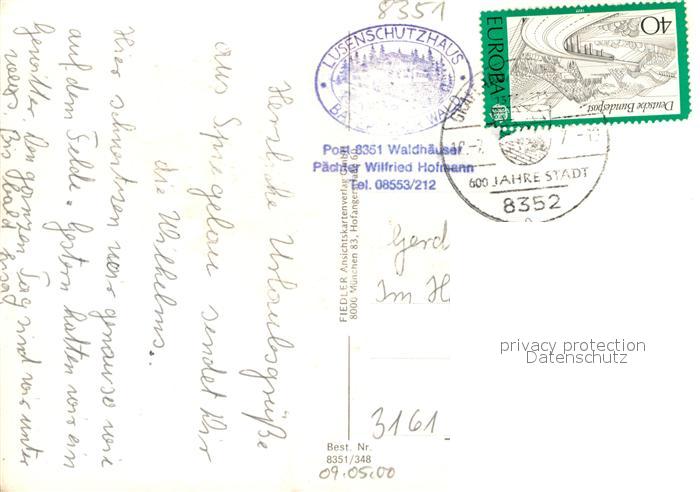 8351
LUSENSCHUTZHAUS
Post 8351 Waldhäuser
Pächter Wilfried Hofmann
Tel. 08553/212
EUROPA
40
Deutsche Bundespost
600 JAHRE STADT
8352
Herzliche Urlaubsgrüße
aus Spiegelau sendet Dir
die Wilhelms.
Hier schwitzen wir genauso wie
auf dem Felde. Gestern hatten wir ein
Gewitter. Den ganzen Tag sind wir unter
wegs. Bis bald
FIEDLER Ansichtskartenverlag GmbH
8000 München 83, Hofangerstraße
Gerd
Im H
3161
privacy protection
Datenschutz
Best. Nr.
8351/348
09.05.00